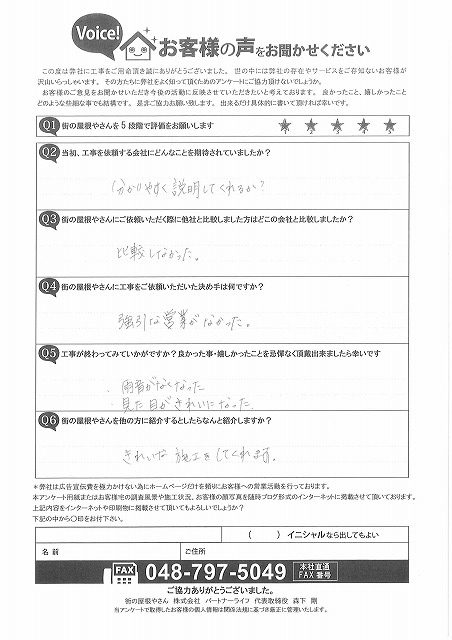 Voice!
お客様の声をお聞かせください
この度は弊社に工事をご用命頂き誠にありがとうございました。 世の中には弊社の存在やサービスをご存知ないお客様が
沢山いらっしゃいます。その方たちに弊社をよく知って頂くためのアンケートにご協力頂けないでしょうか。
お客様のご意見をお聞かせいただき今後の活動に反映させていただきたいと考えております。 良かったこと、嬉しかったこと
どのような些細な事でも結構です。 是非ご協力お願い致します。 出来るだけ具体的に書いて頂ければ幸いです。
Q1 街の屋根やさんを5段階で評価をお願いします
1 2 3 4 5
Q2 当初、工事を依頼する会社にどんなことを期待されていましたか?
分かりやすく説明してくれるか?
Q3 街の屋根やさんにご依頼いただく際に他社と比較しました方はどこの会社と比較しましたか?
比較しなかった。
Q4 街の屋根やさんに工事をご依頼いただいた決め手は何ですか?
強引な営業がなかった。
Q5 工事が終わってみていかがですか?良かった事・嬉しかったことを忌憚なく頂戴出来ましたら幸いです
・雨音がなくなった
・見た目がきれいになった
Q6 街の屋根やさんを他の方に紹介するとしたらなんと紹介しますか?
きれいな施工をしてくれます。
＊弊社は広告宣伝費を極力かけない為にホームページだけを頼りにお客様への営業活動を行っております。
本アンケート用紙またはお客様宅の調査風景や施工状況、お客様の顔写真を随時ブログ形式のインターネットに掲載させて頂いております。
上記内容をインターネットや印刷物に掲載させて頂いてもよろしいでしょうか?
下記の中から〇印をお付下さい。
( ) イニシャルなら出してもよい
名 前
ご住所
FAX 048-797-5049 本社直通 FAX 番号
ご協力ありがとうございました。
街の屋根やさん 株式会社 パートナーライフ 代表取締役 森下 剛
当アンケートで取得したお客様の個人情報は関係法規に基づき厳正に管理いたします。